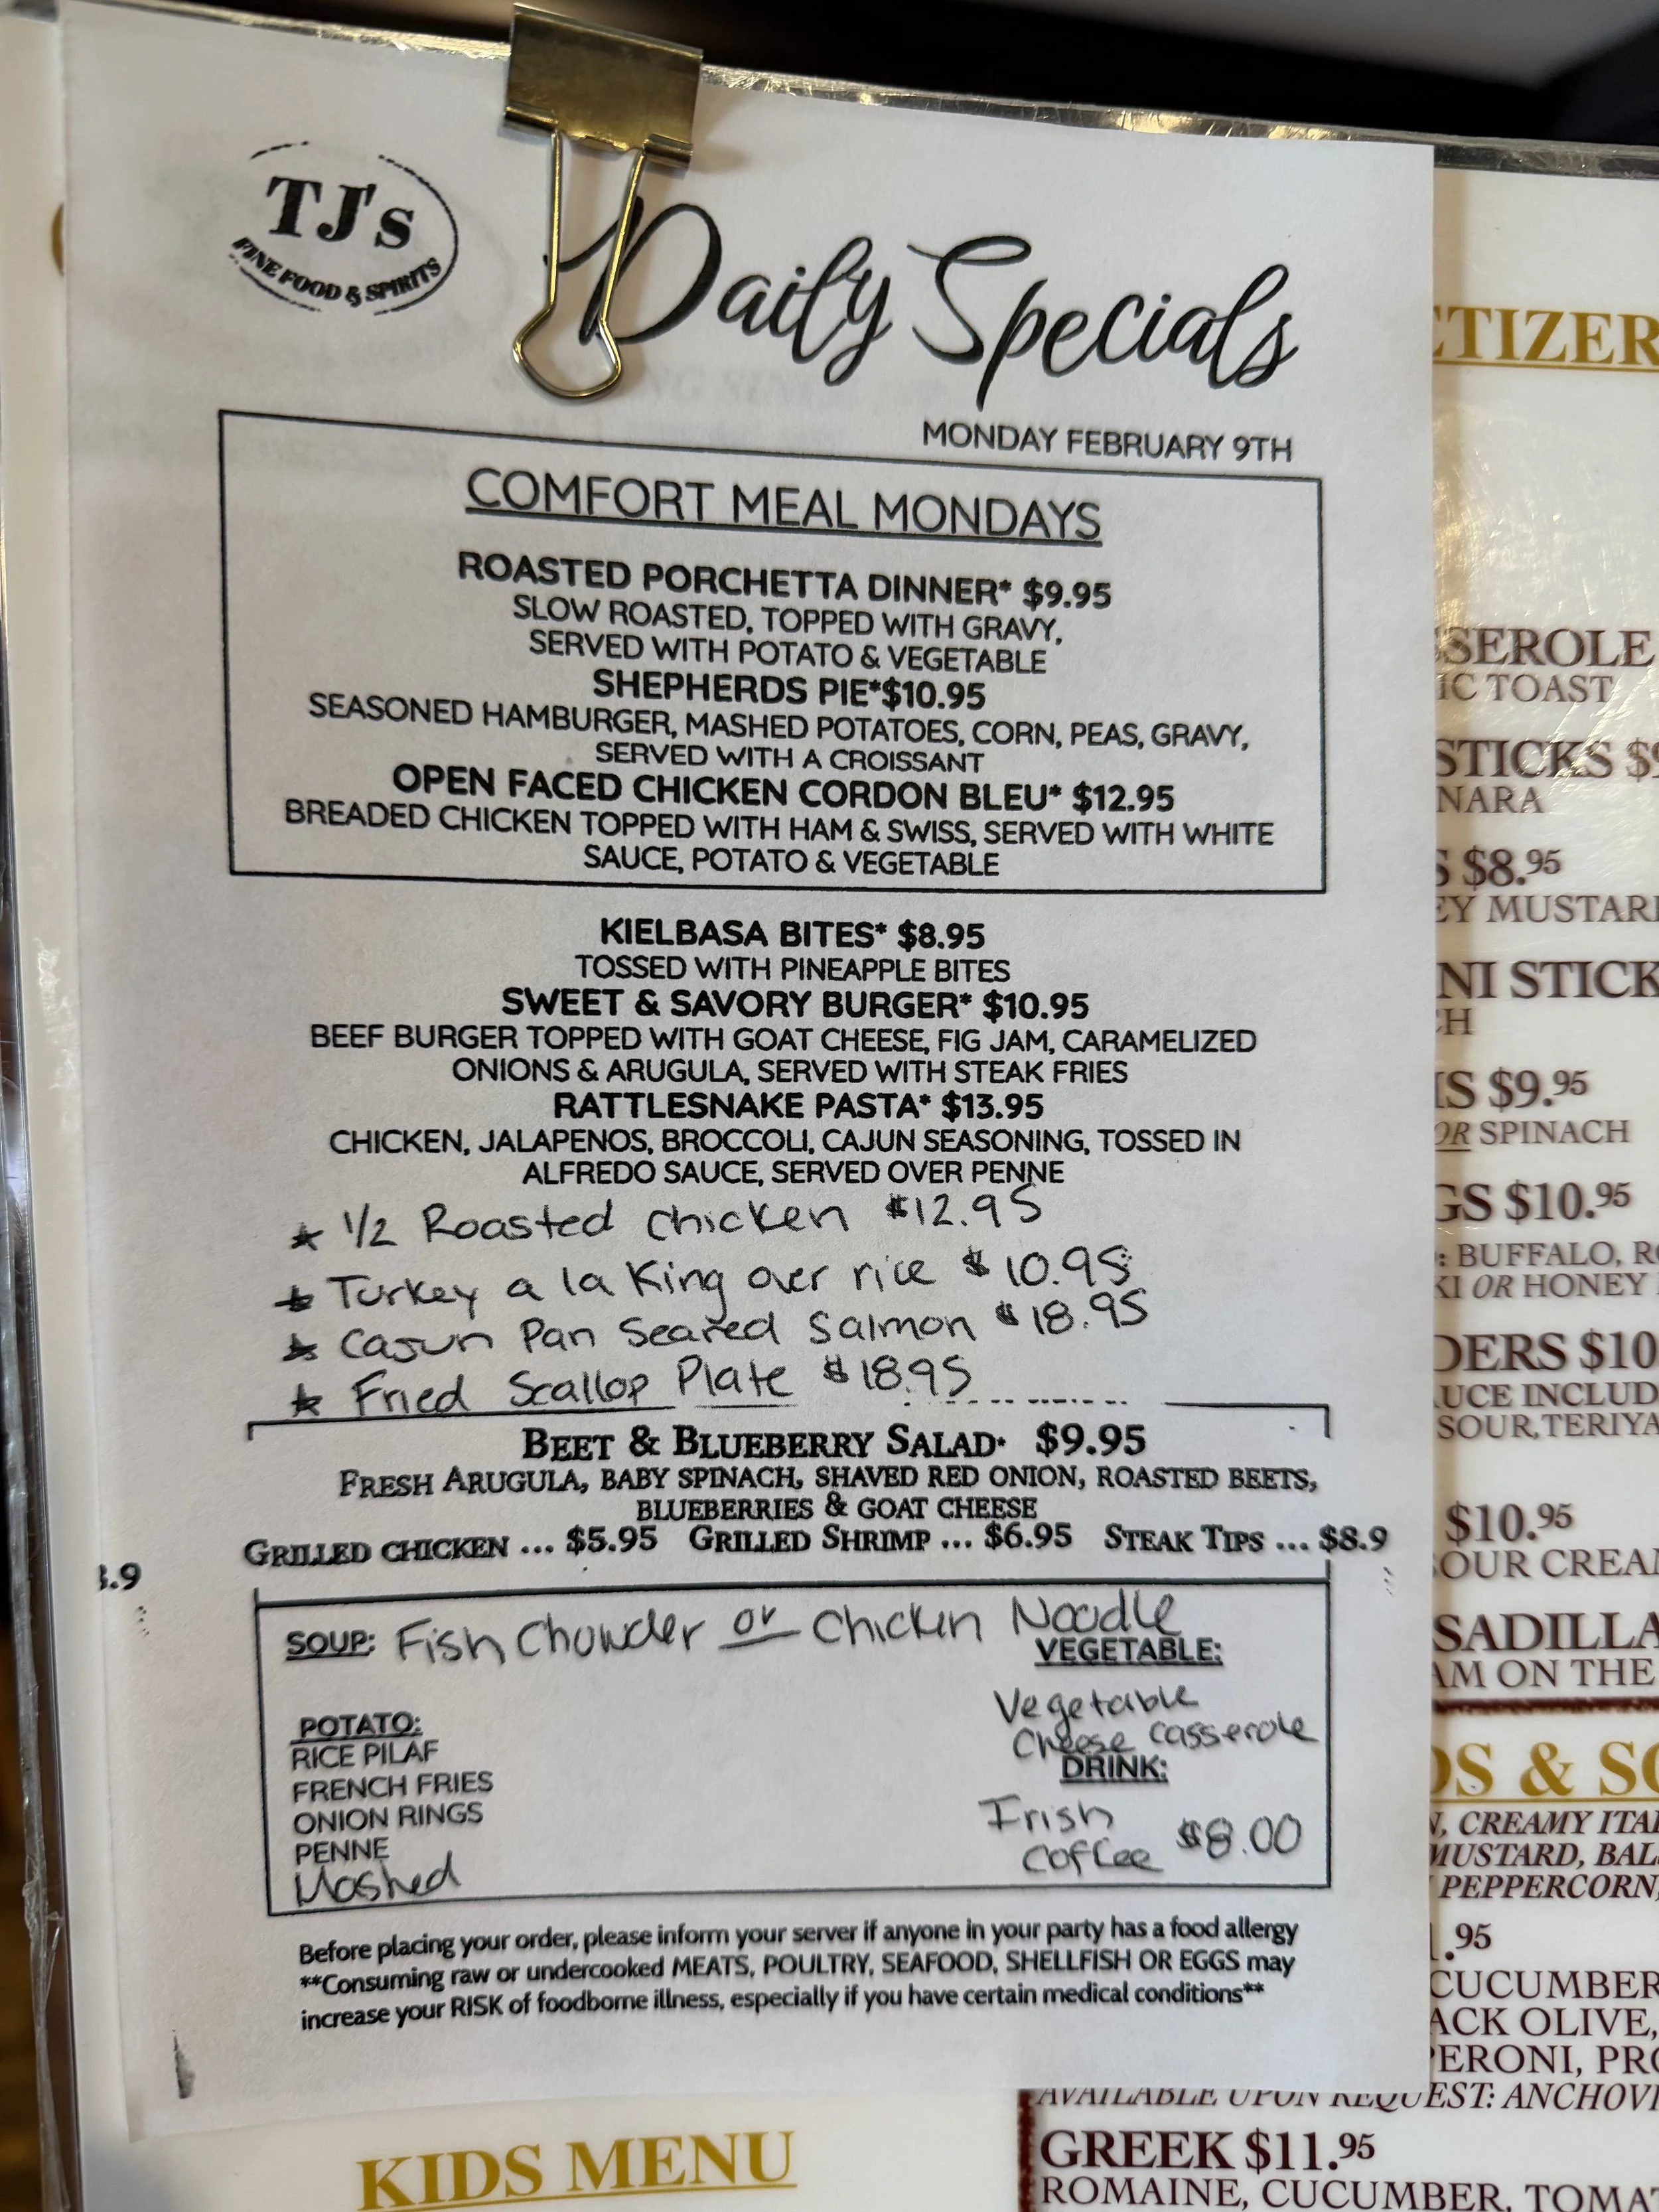 TJ's
FINE FOOD & SPIRITS
Daily Specials
MONDAY FEBRUARY 9TH
COMFORT MEAL MONDAYS
ROASTED PORCHETTA DINNER* $9.95
SLOW ROASTED, TOPPED WITH GRAVY,
SERVED WITH POTATO & VEGETABLE
SHEPHERDS PIE*$10.95
SEASONED HAMBURGER, MASHED POTATOES, CORN, PEAS, GRAVY,
SERVED WITH A CROISSANT
OPEN FACED CHICKEN CORDON BLEU* $12.95
BREADED CHICKEN TOPPED WITH HAM & SWISS, SERVED WITH WHITE
SAUCE, POTATO & VEGETABLE
KIELBASA BITES* $8.95
TOSSED WITH PINEAPPLE BITES
SWEET & SAVORY BURGER* $10.95
BEEF BURGER TOPPED WITH GOAT CHEESE, FIG JAM, CARAMELIZED
ONIONS & ARUGULA, SERVED WITH STEAK FRIES
RATTLESNAKE PASTA* $13.95
CHICKEN, JALAPENOS, BROCCOLI, CAJUN SEASONING, TOSSED IN
ALFREDO SAUCE, SERVED OVER PENNE
* 1/2 Roasted chicken $12.95
* Turkey a la King over rice $10.95
* Cajun Pan Seared Salmon $18.95
* Fried Scallop Plate $18.95
BEET & BLUEBERRY SALAD* $9.95
FRESH ARUGULA, BABY SPINACH, SHAVED RED ONION, ROASTED BEETS,
BLUEBERRIES & GOAT CHEESE
GRILLED CHICKEN ... $5.95 GRILLED SHRIMP ... $6.95 STEAK TIPS ... $8.9
.9
SOUP: Fish Chowder or Chicken Noodle
VEGETABLE:
Vegetable
Cheese Casserole
POTATO:
RICE PILAF
FRENCH FRIES
ONION RINGS
PENNE
Mashed
DRINK:
Irish
Coffee $8.00
Before placing your order, please inform your server if anyone in your party has a food allergy
**Consuming raw or undercooked MEATS, POULTRY, SEAFOOD, SHELLFISH OR EGGS may
increase your RISK of foodborne illness, especially if you have certain medical conditions**
KIDS MENU
TIZER
SEROLE
IC TOAST
STICKS $
NARA
$8.95
EY MUSTAR
NI STICK
CH
S $9.95
OR SPINACH
GS $10.95
: BUFFALO, R
KI OR HONEY
DERS $10
UCE INCLUD
SOUR, TERIYA
$10.95
OUR CREA
SADILLA
AM ON THE
DS & SO
, CREAMY ITA
MUSTARD, BAL
PEPPERCORN,
.95
CUCUMBER
ACK OLIVE,
PERONI, PRO
AVAILABLE UPON REQUEST: ANCHOVI
GREEK $11.95
ROMAINE, CUCUMBER, TOMAT